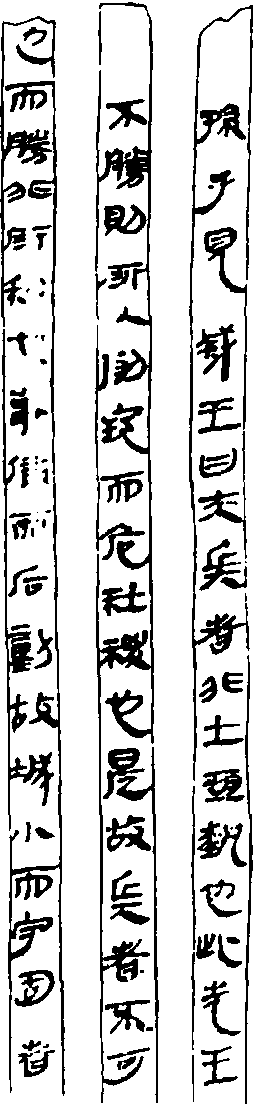 孫子見威王曰夫兵者非士恒埶也此先王
不勝則所以削地而危社稷也是故兵者不可
也而勝非所利也事備而后動故城小而守固者